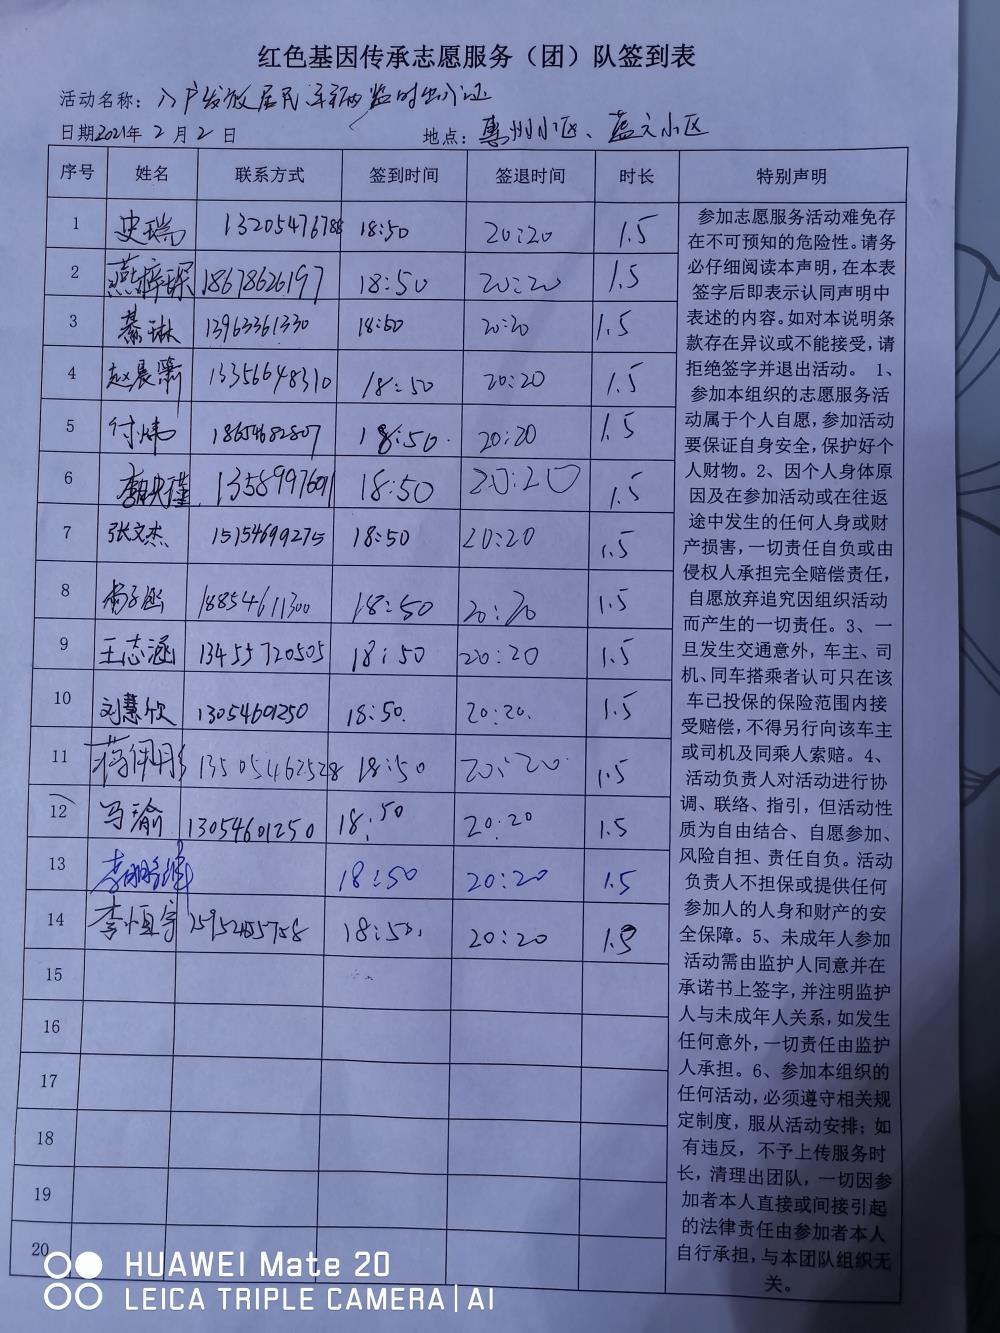 红色基因传承志愿服务（团）队签到表
活动名称：入户发放居民车辆临时出入证
日期2021年2月2日 地点：惠州小区、蓝天小区
序号 姓名 联系方式 签到时间 签退时间 时长 特别声明
1 史瑞 13205476788 18:50 20:20 1.5
2 燕梓琛 18678626197 18:50 20:20 1.5
3 綦琳 13963361330 18:50 20:20 1.5
4 赵晨箫 13356648310 18:50 20:20 1.5
5 付炜 18654682807 18:50 20:20 1.5
6 13589976091 18:50 20:20 1.5
7 张文杰 15154699275 18:50 20:20 1.5
8 18854611300 18:50 20:20 1.5
9 王志涵 13455720505 18:50 20:20 1.5
10 刘慧欣 13054601250 18:50 20:20 1.5
11 13505462528 18:50 20:20 1.5
12 马瑜 13054601250 18:50 20:20 1.5
13 18:50 20:20 1.5
14 李恒宇 18:50 20:20 1.5
15
16
17
18
19
20
参加志愿服务活动难免存
在不可预知的危险性。请务
必仔细阅读本声明，在本表
签字后即表示认同声明中
表述的内容。如对本说明条
款存在异议或不能接受，请
拒绝签字并退出活动。 1、
参加本组织的志愿服务活
动属于个人自愿，参加活动
要保证自身安全，保护好个
人财物。2、因个人身体原
因及在参加活动或在往返
途中发生的任何人身或财
产损害，一切责任自负或由
侵权人承担完全赔偿责任，
自愿放弃追究因组织活动
而产生的一切责任。3、一
旦发生交通意外，车主、司
机、同车搭乘者认可只在该
车已投保的保险范围内接
受赔偿，不得另行向该车主
或司机及同乘人索赔。4、
活动负责人对活动进行协
调、联络、指引，但活动性
质为自由结合、自愿参加、
风险自担、责任自负。活动
负责人不担保或提供任何
参加人的人身和财产的安
全保障。5、未成年人参加
活动需由监护人同意并在
承诺书上签字，并注明监护
人与未成年人关系，如发生
任何意外，一切责任由监护
人承担。6、参加本组织的
任何活动，必须遵守相关规
定制度，服从活动安排；如
有违反，不予上传服务时
长，清理出团队，一切因参
加者本人直接或间接引起
的法律责任由参加者本人
自行承担，与本团队组织无
关。
HUAWEI Mate 20
LEICA TRIPLE CAMERA | AI